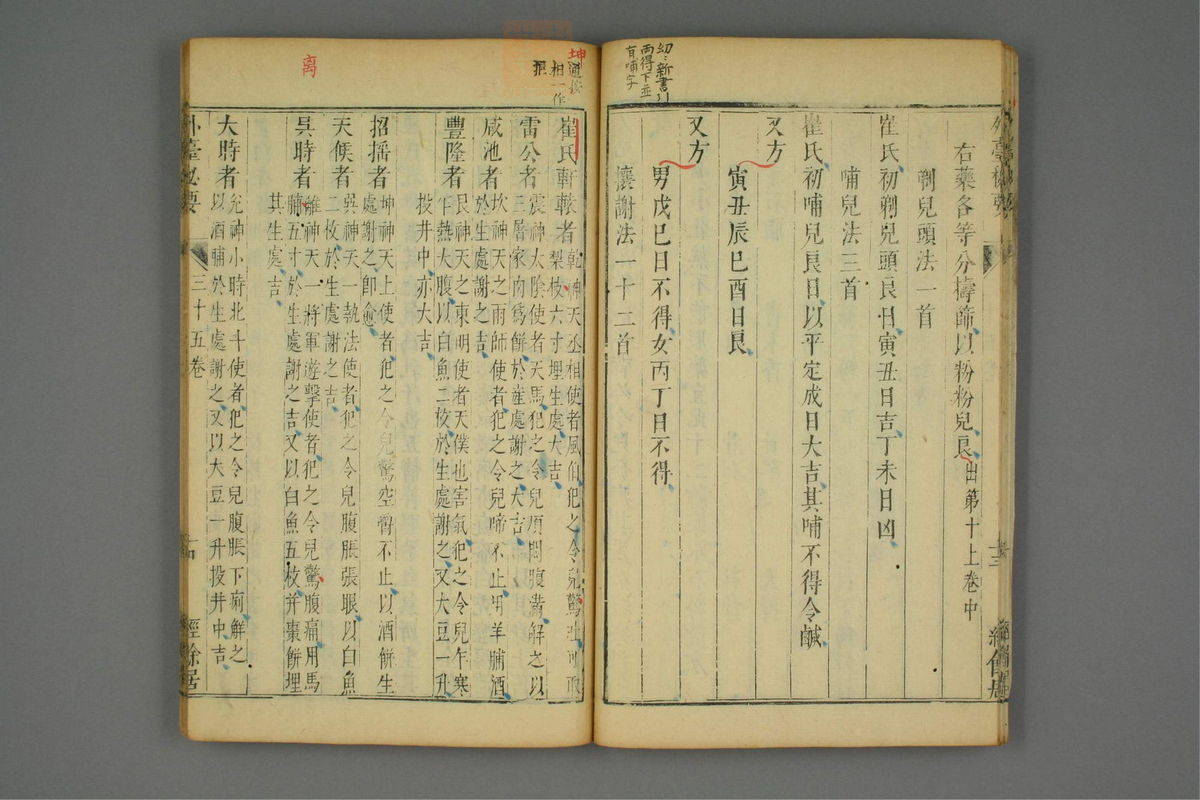 幼々新書引
両得下並
有哺字
右藥各等分擣篩以粉粉兒良出第十上卷中
剃兒頭法一首
崔氏初剃兒頭良日寅丑日吉丁未日凶
哺兒法三首
崔氏初哺兒良日以平定成日大吉其哺不得令鹹
又方
寅丑辰巳酉日良
又方
男戊巳日不得女丙丁日不得
禳謝法一十二首
坤
相一作
离
崔氏軒轅者乾神天丞相使者風伯犯之令兒驚吐可取
梨枝六寸埋生處大吉
雷公者震神太陰使者天馬犯之令兒煩悶腹滿解之以
三屠家肉爲餅於產處謝之大吉
咸池者坎神天之雨師使者犯之令兒啼不止用羊脯酒
於生處謝之吉
豐隆者艮神天之東明使者天僕也害氣犯之令兒乍寒
乍熱大腹以白魚二枚於生處謝之又大豆一升
投井中亦大吉
招搖者坤神天上使者犯之令兒驚空啼不止以酒餅生
處謝之即愈
天候者巽神天一執法使者犯之令兒腹脹張眼以白魚
二枚於生處謝之吉
吳時者離神天一將軍遊擊使者犯之令兒驚腹痛用馬
脯五寸於生處謝之吉又以白魚五枚并棗餅埋
其生處吉
大時者兌神小時北斗使者犯之令兒腹脹下痢解之
以酒脯於生處謝之又以大豆一升投井中吉
外臺秘要 三十五卷 十四 經餘居